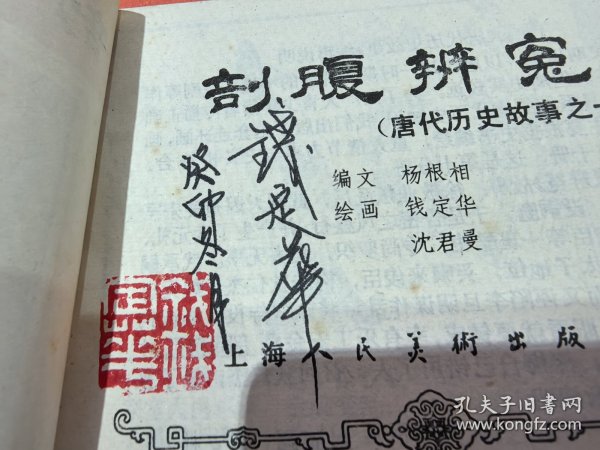 剖腹辨冤
（唐代历史故事之一
编文 杨根相
绘画 钱定华
沈君曼
钱定华
癸卯冬月
上海人民美術出版
孔夫子旧书网
www.kongfz.com